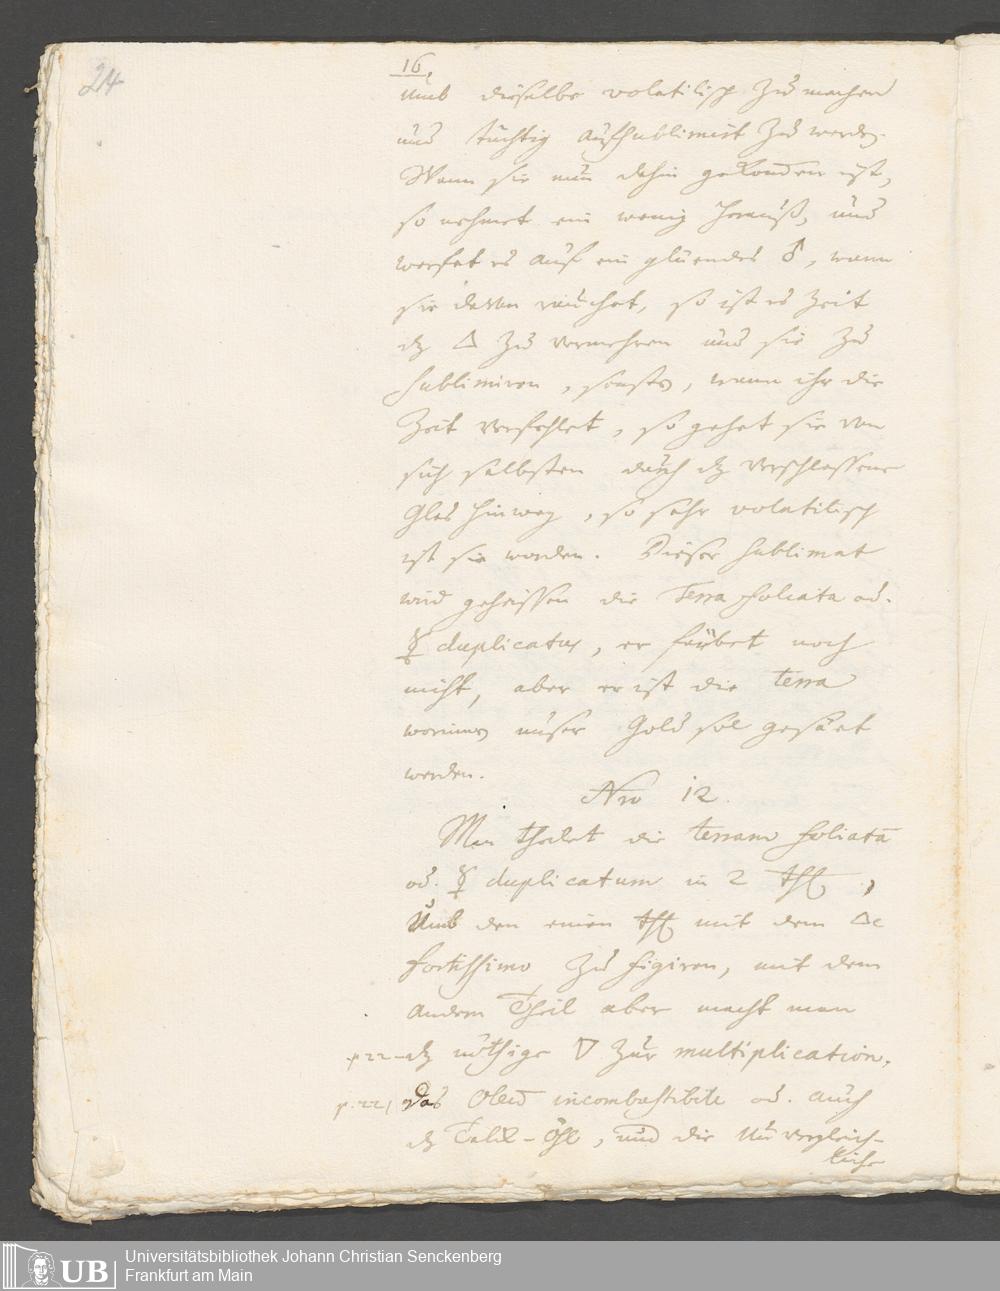 24
16,
Umb dieselbe volatilisch zu machen
und tüchtig auffsublimirt zu werden.
Wann sie nun dahin gekom̄en ist,
so nehmet ein wenig herauß, und
werfet es auf ein glüendes ♂, wann
sie davon rauchet, so ist es Zeit
dz 🜂 zu vermehren und sie zu
sublimiren, sonsten, wann ihr die
Zeit verfehlet, so gehet sie von
sich selbsten durch dz verschlossene
Glas hinweg, so sehr volatilisch
ist sie worden. Dieser sublimat
wird geheissen die Terra foliata od.
☿ duplicatus, er färbet noch
nicht, aber er ist die terra
worinnen unser Gold sol gesäet
werden.
Nro 12.
Man theilet die terram foliatā
od. ☿ duplicatum in 2 thl,
Umb den einen thl mit dem 🜂
fortissimo zu figiren, mit dem
andern Theil aber macht man
p 22 dz nöthige 🜄 zur multiplication,
p. 22, das Oleū incombustibile od. auch
dz Talck-Öhl, und die Unvergleich-
liche
Universitätsbibliothek Johann Christian Senckenberg
Frankfurt am Main
UB